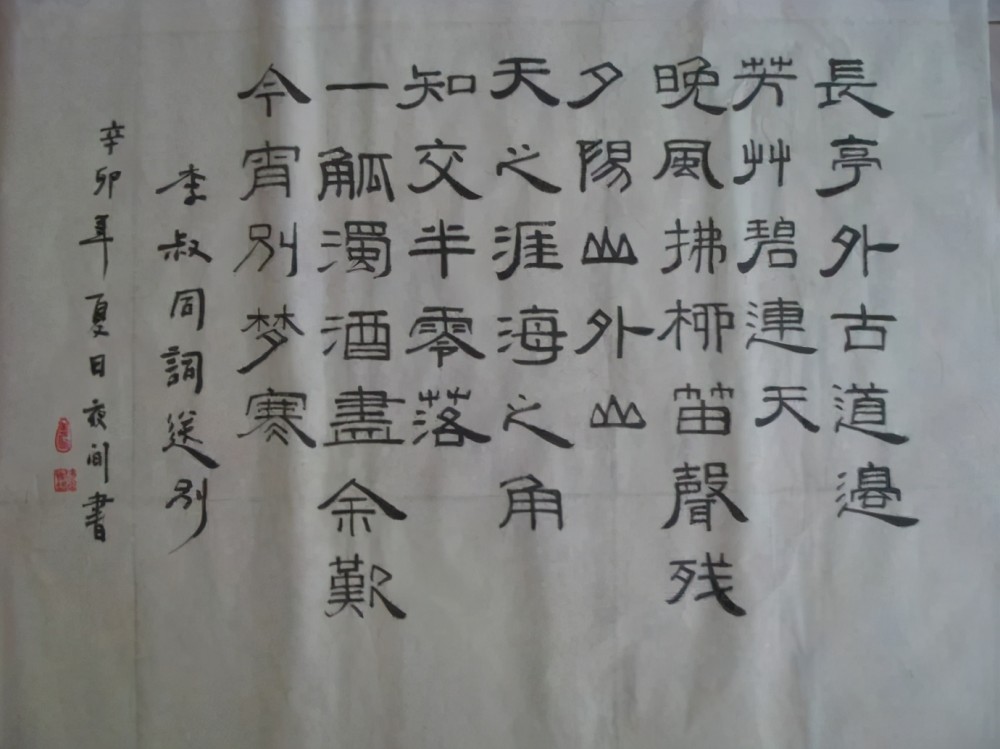 長亭外古道邊
芳艸碧連天
晚風拂柳笛聲残
夕陽山外山
天之涯海之角
知交半零落
一觚濁酒盡余歎
今宵別梦寒
李叔同詞送別
辛卯年夏日夜间書